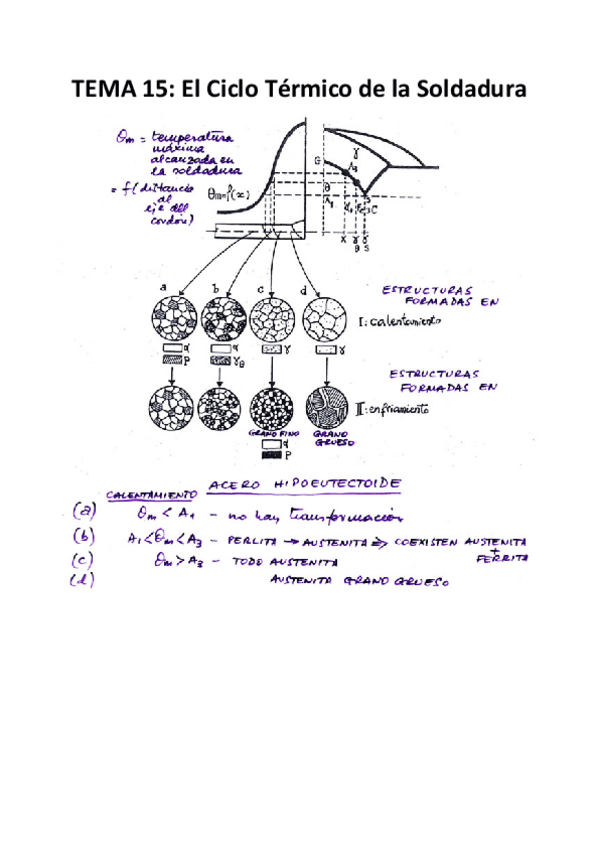 TEMA 15: El Ciclo Térmico de la Soldadura
θm = temperatura
máxima
alcanzada en
la soldadura
= f(distancia
al
eje del
cordón)
θm=f(x)
G
γ
A3
θ
A1
S
C
X
γ
γ
θ
S
a b c d
ESTRUCTURAS
FORMADAS EN
I: calentamiento
α α γ γ
P γθ
ESTRUCTURAS
FORMADAS EN
II: enfriamiento
GRANO FINO GRANO
GRUESO
α
P
ACERO HIPOEUTECTOIDE
CALENTAMIENTO
(a) θm < A1 - no hay transformación
(b) A1<θm<A3 - PERLITA → AUSTENITA ⇒ COEXISTEN AUSTENITA
+
FERRITA
(c) θm>A3 - TODO AUSTENITA
(d) AUSTENITA GRANO GRUESO